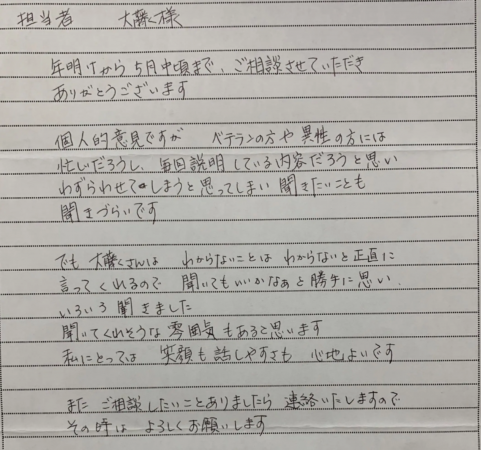 担当者　大藤様
年明けから5月中頃まで、ご相談させていただき
ありがとうございます
個人的意見ですが　ベテランの方や異性の方には
忙しいだろうし、毎回説明している内容だろうと思い
わずらわせてしまうと思ってしまい 聞きたいことも
聞きづらいです
でも 大藤さんは わからないことは わからないと正直に
言ってくれるので 聞いてもいいかなぁと勝手に思い
いろいろ聞きました
聞いてくれそうな雰囲気もあると思います
私にとっては 笑顔も話しやすさも 心地よいです
また ご相談したいことありましたら 連絡いたしますので
その時は よろしくお願いします